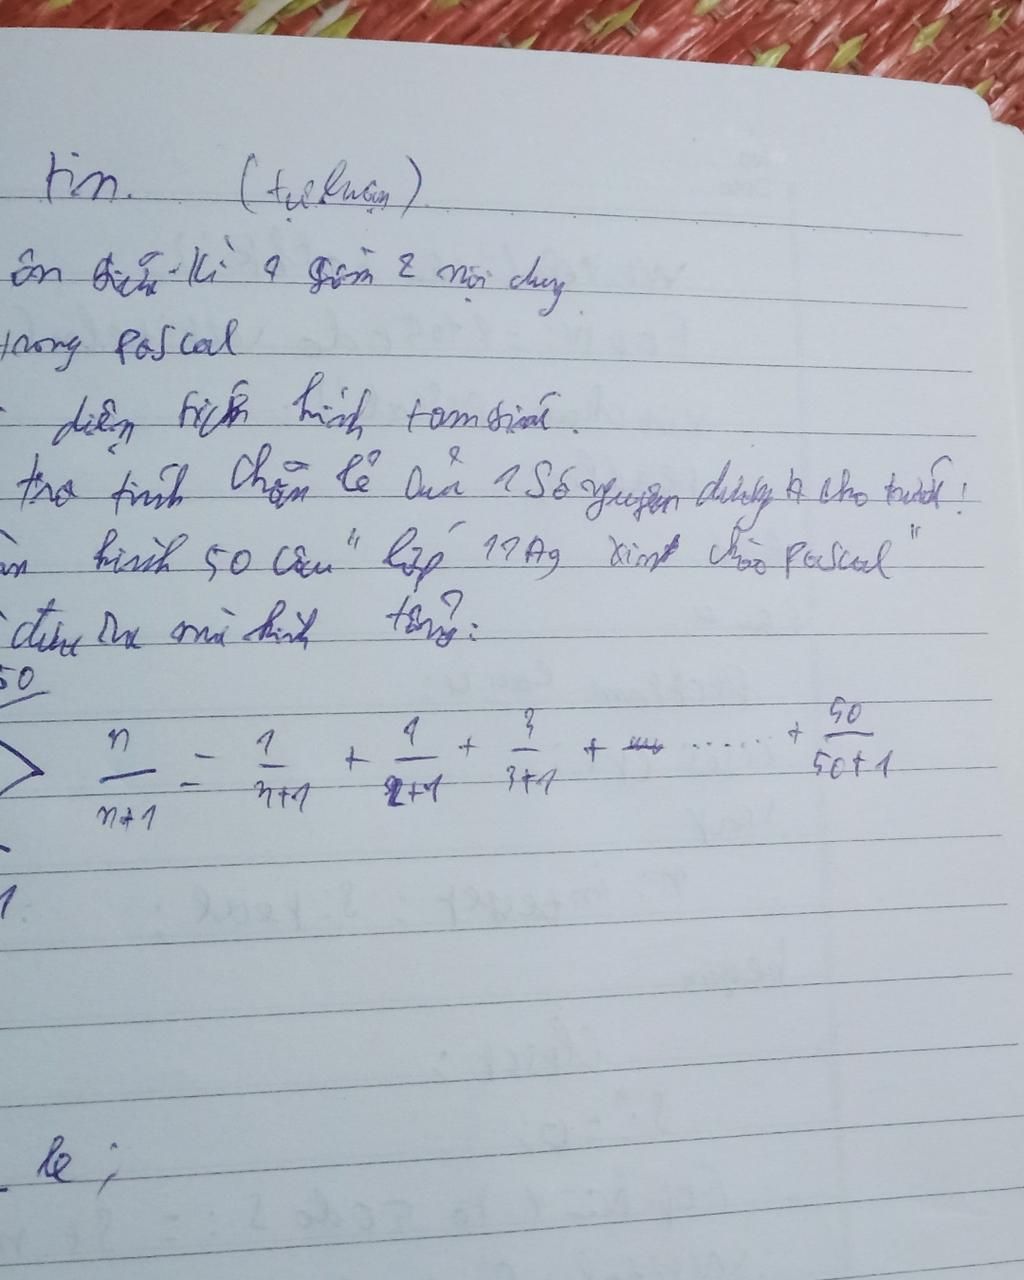 Tin. (tự luận)
ôn kì 1 gồm 2 nội dung
trong pascal
diện tích hình tam giác.
tra tính chẵn lẻ của 1 số nguyên dương A cho trước!
hình 50 câu "lớp 11A9 xinh chào pascal"
đưa ra mà hình tổng:
50
∑ n/n+1 = 1/n+1 + 1/2+1 + 3/3+1 + ...... + 50/50+1
1
le ;